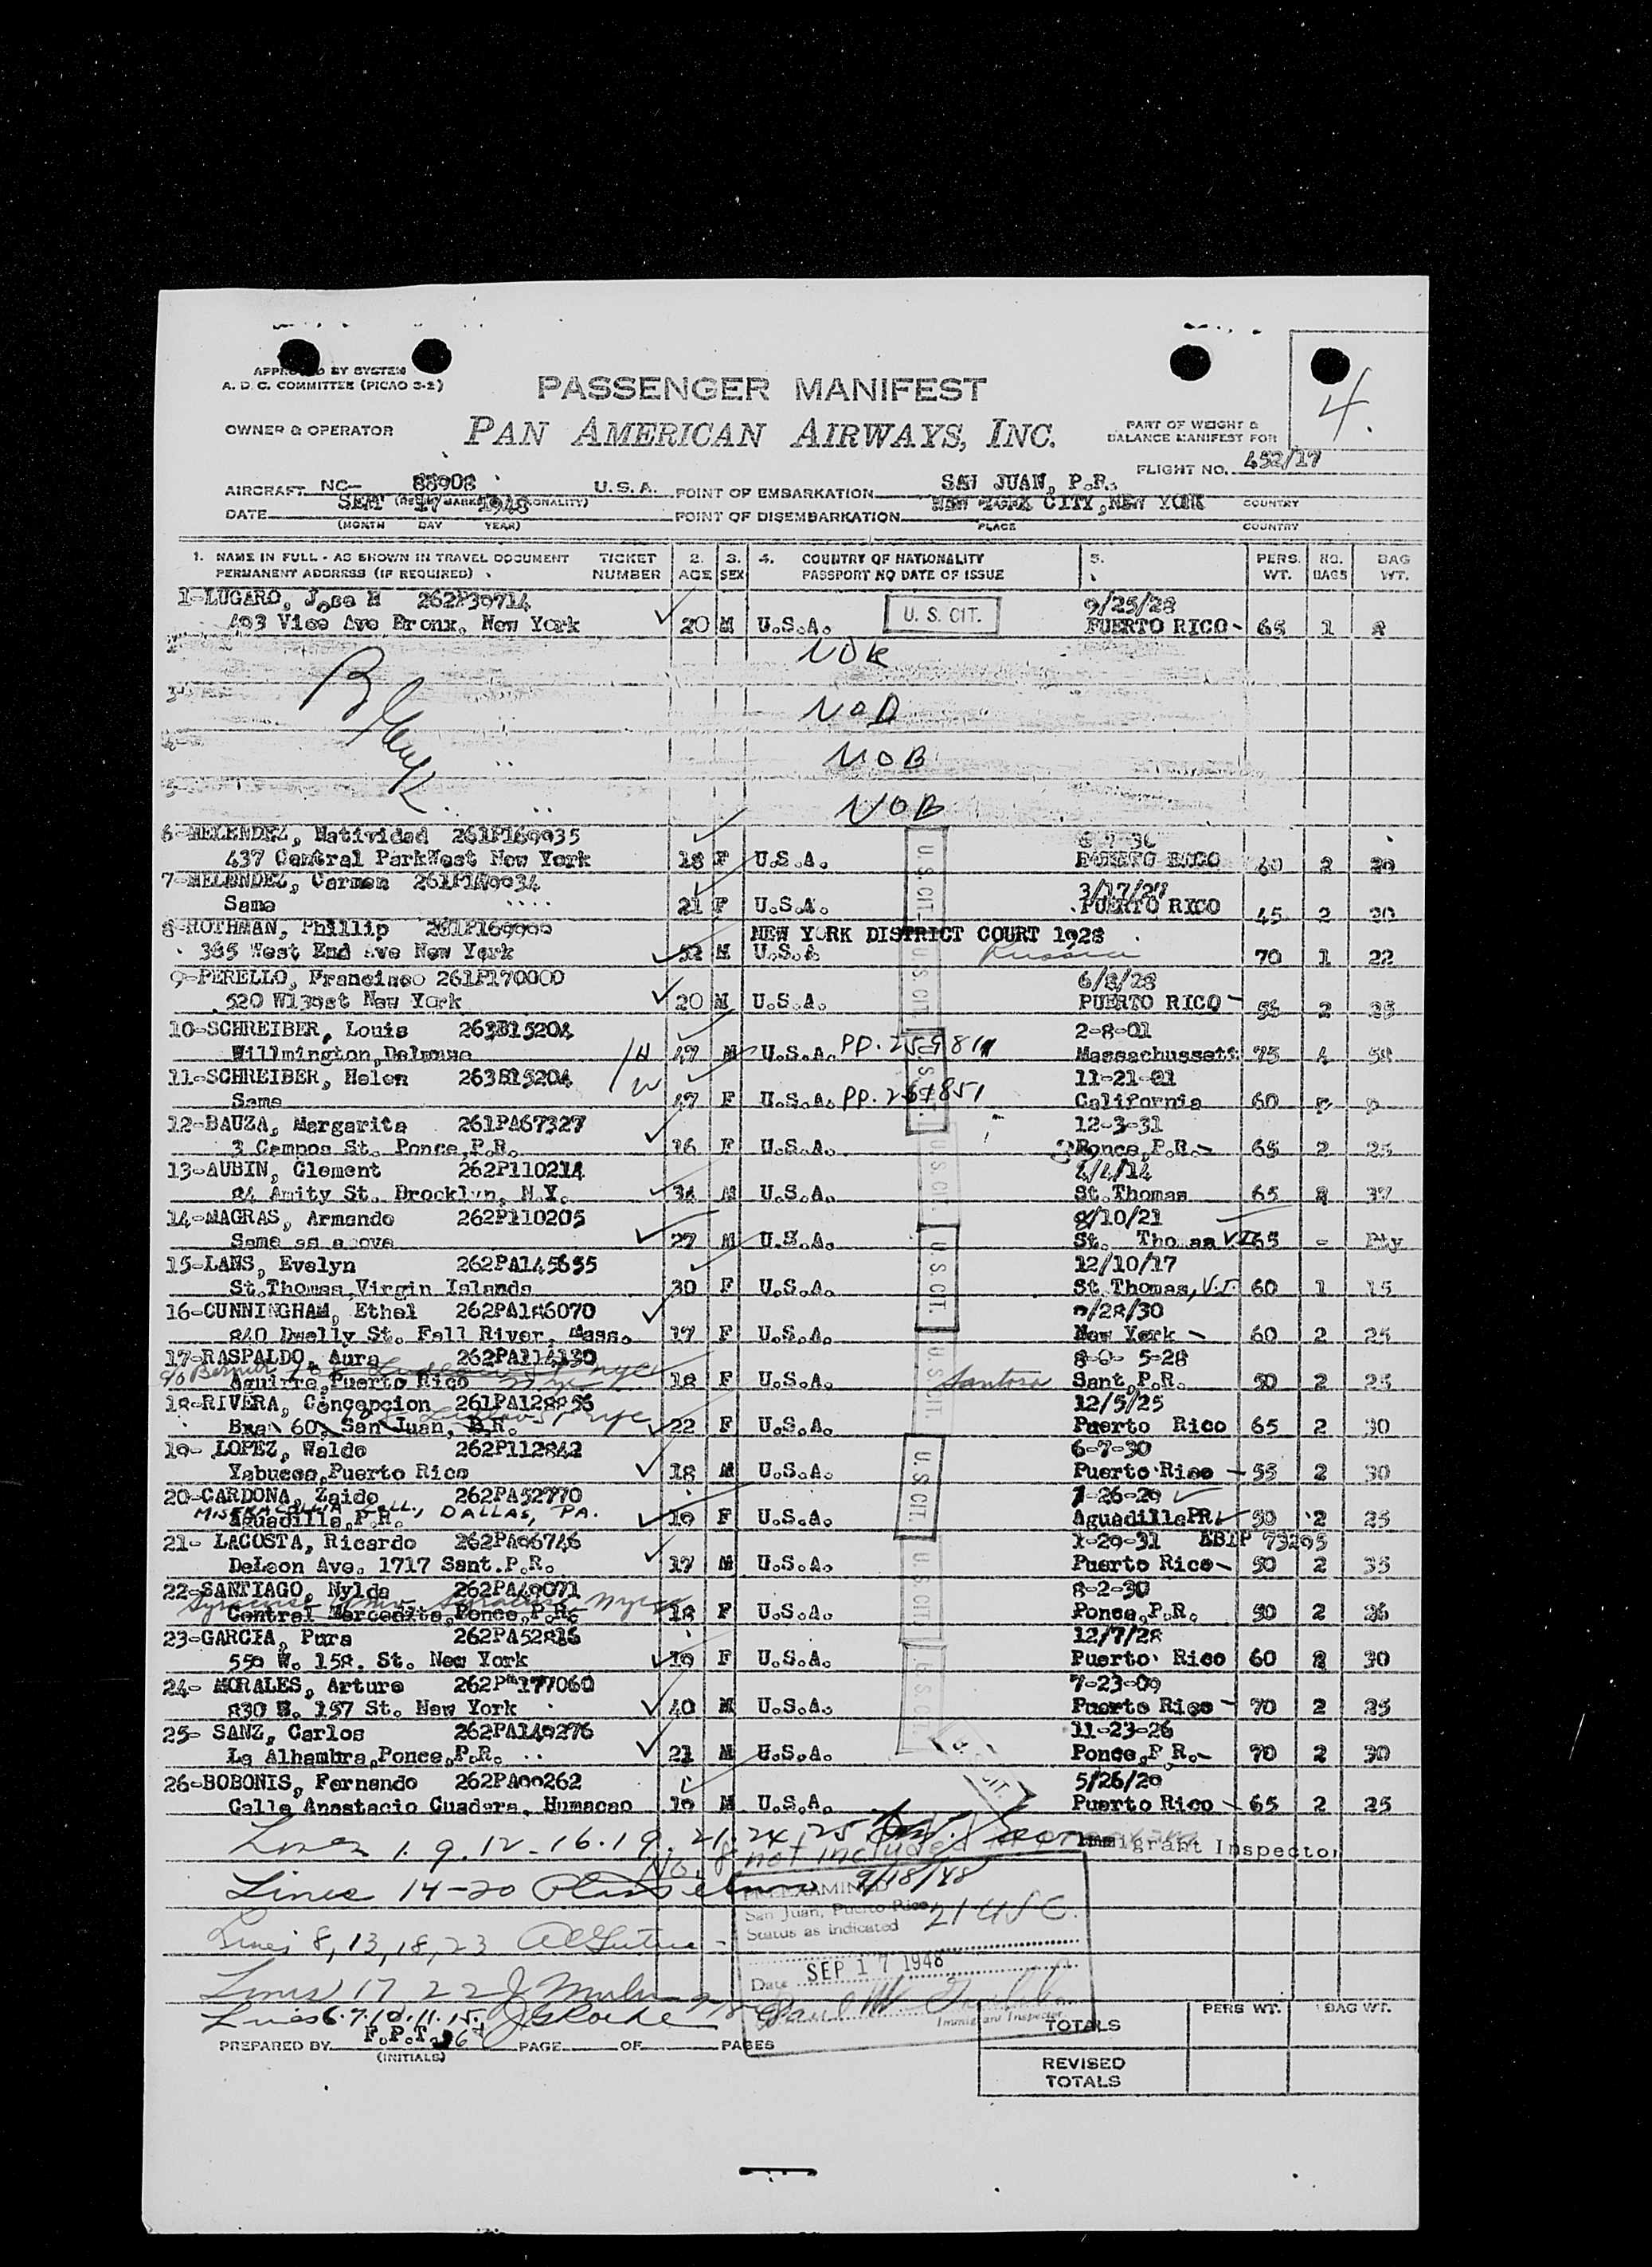 4.
APPROVED BY SYSTEM
A. D. C. COMMITTEE (PICAO S-2)
PASSENGER MANIFEST
OWNER & OPERATOR
PAN AMERICAN AIRWAYS, INC.
PART OF WEIGHT &
BALANCE MANIFEST FOR
FLIGHT NO. 452/17
AIRCRAFT NC- 88908 U.S.A. POINT OF EMBARKATION SAN JUAN, P.R. COUNTRY
DATE SEPT 17 1948 POINT OF DISEMBARKATION NEW YORK CITY, NEW YORK
(MONTH DAY YEAR) PLACE COUNTRY
1. NAME IN FULL - AS SHOWN IN TRAVEL DOCUMENT TICKET 2. 3. 4. COUNTRY OF NATIONALITY 5. PERS. NO. BAG
PERMANENT ADDRESS (IF REQUIRED) NUMBER AGE SEX PASSPORT NO DATE OF ISSUE WT. BAGS WT.
1-LUGARO, Jose M 262P30714 U. S. CIT. 9/25/28
Vice Ave Bronx, New York 20 M U.S.A. PUERTO RICO- 65 1 8
2-
3-
4-
5-
Blank
NOB
NOB
NOB
6-MELENDEZ, Natividad
437 Central ParkWest New York 18 F U.S.A. U.S. CIT. PUERTO RICO 60 2 20
7-MELENDEZ, Carmen 3/17/27
Same 21 F U.S.A. PUERTO RICO 45 2 20
8-ROTHMAN, Phillip NEW YORK DISTRICT COURT 1928
385 West End Ave New York 52 M U.S.A U.S. CIT. Russia 70 1 22
9-PERELLO, Francisco 261P170000 6/8/28
520 W139st New York 20 M U.S.A. PUERTO RICO- 55 2 25
10-SCHREIBER, Louis 263B15204 2-8-01
Willmington, Delmouse /H 47 M U.S.A. PP. Massachussett 75 4 58
11-SCHREIBER, Helen 263B15204 11-21-01
Same /W 47 F U.S.A. PP. California 60
12-BAUZA, Margarita 261PA67327 12-3-31
3 Campos St. Ponce, P.R. 16 F U.S.A. U.S. CIT. Ponce, P.R.- 65 2 25
13-AUBIN, Clement 262P110214 4/4/14
84 Amity St. Brooklyn, N.Y. 34 M U.S.A. St. Thomas 65 2 37
14-MAGRAS, Armando 262P110205 8/10/21
Same as above 27 M U.S.A. St. Thomas VI 65 -
15-LANS, Evelyn 262PA145655 U.S. CIT. 12/10/17
St. Thomas, Virgin Islands 30 F U.S.A. St Thomas, V.I. 60 1 15
16-CUNNINGHAM, Ethel 262PA146070 9/28/30
840 Dwelly St. Fall River, Mass. 17 F U.S.A. New York - 60 2 25
17-RASPALDO, Aura 262PA114130 U.S. CIT. 8-0- 5-28
Aguirre, Puerto Rico 18 F U.S.A. Santosa Sant, P.R. 50 2 25
18-RIVERA, Concepcion 261PA128856 12/5/25
Box 60, San Juan, P.R. 22 F U.S.A. Puerto Rico 65 2 30
19- LOPEZ, Waldo 262P112842 6-7-30
Yabucoa, Puerto Rico 18 M U.S.A. U.S. CIT. Puerto Rico - 55 2 30
20-CARDONA, Zaida 262PA52770 1-26-29
MISERICORDIA COLL., DALLAS, PA.
Aguadilla, P.R. 19 F U.S.A. Aguadilla PR. 50 2 25
21- LACOSTA, Ricardo 262PA96746 1-29-31 EBIP 73295
DeLeon Ave. 1717 Sant. P.R. 17 M U.S.A. U.S. CIT. Puerto Rico- 50 2 35
22-SANTIAGO, Nylda 262PA49071 8-2-30
Syracuse Univ. Syracuse NY
Central Mercedita, Ponce, P.R. 18 F U.S.A. Ponce, P.R. 50 2 26
23-GARCIA, Pura 262PA52816 12/7/28
550 W. 158. St. New York 19 F U.S.A. U.S. CIT. Puerto Rico 60 2 30
24- MORALES, Arturo 262PA177060 7-23-09
830 W. 157 St. New York 40 M U.S.A. Puerto Rico - 70 2 25
25- SANZ, Carlos 262PA149276 11-23-26
La Alhambra, Ponce, P.R. 21 M U.S.A. Ponce, P R.- 70 2 30
26-BOBONIS, Fernando 262PA99262 5/26/29
Calle Anastacio Cuadera, Humacao 19 M U.S.A. Puerto Rico - 65 2 25
Lines 1. 9. 12 - 16. 19. 21. 24. 25 Immigrant Inspector
No. 8 not included
Lines 14-20 9/18/48
PRE-EXAMINED
San Juan, Puerto Rico 21 USC.
Status as indicated
Lines 8, 13, 18, 23
Date SEP 17 1948
Lines 17 22
Lines 6. 7. 10. 11. 15. J G Roche
Immigrant Inspector
PREPARED BY F.P.T. PAGE OF PAGES
(INITIALS)
PERS WT. BAG WT.
TOTALS
REVISED
TOTALS